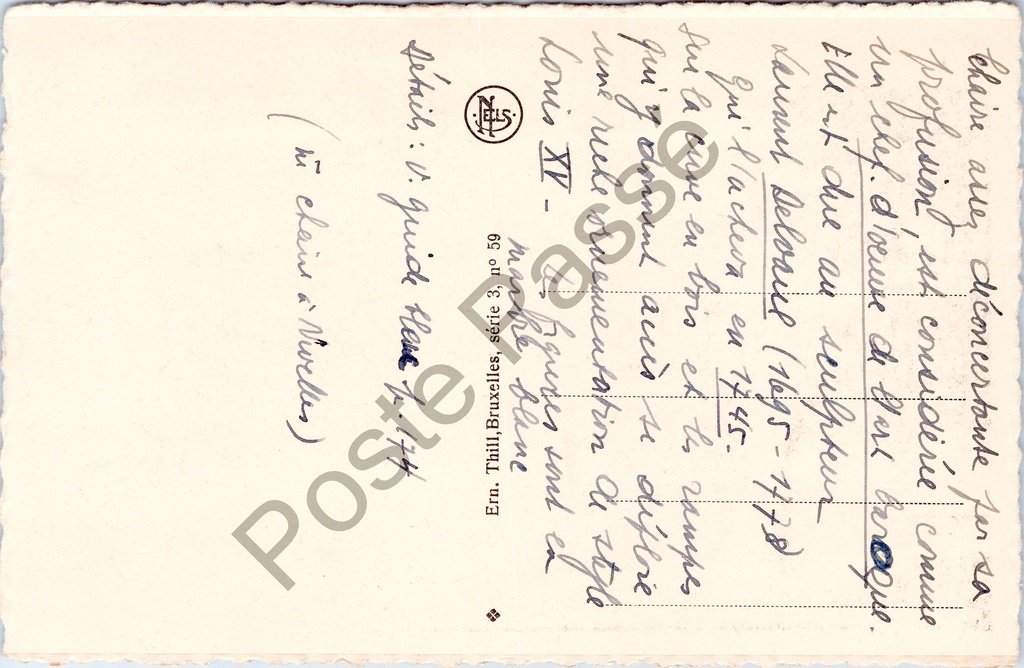 Chaire assez déconcertante par sa
profusion, est considérée comme
un chef-d'oeuvre de l'Art baroque.
Elle est due au sculpteur
Laurent Delvaux (1695-1778)
qui l'acheva en 1745-
Sur la cuve en bois et les rampes
qui y donnent accès se déploie
une riche ornementation de style
Louis XV - Les figures sont en
marbre blanc
Ern. Thill, Bruxelles, série 3, n° 59
NELS
Détails: v. guide bleu p. 174
(né chaire à Nivelles)
Poste Passe